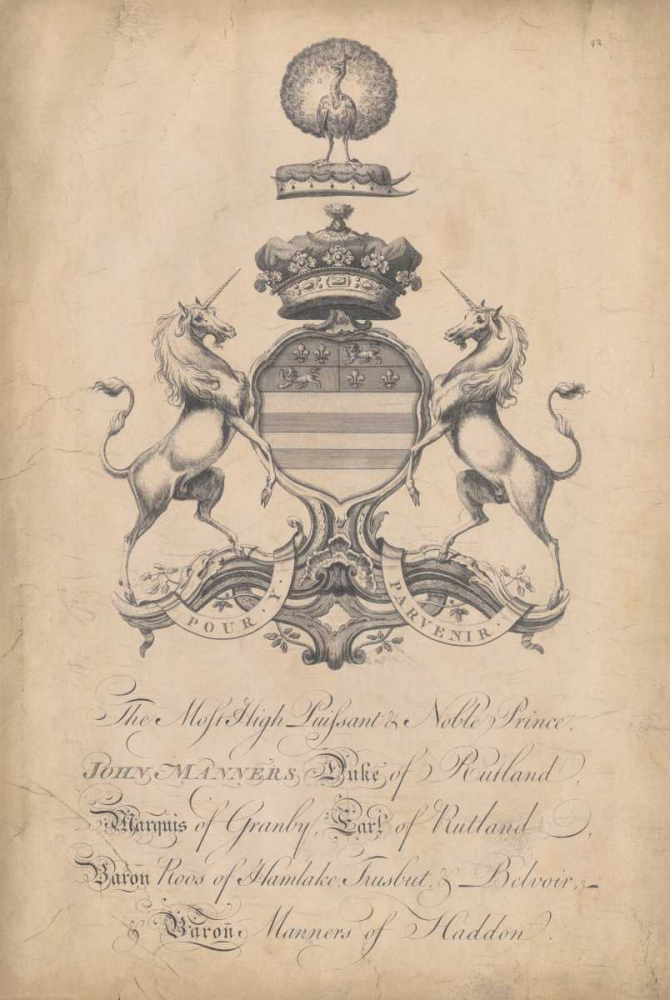 92
POUR · Y · PARVENIR ·
The Moſt High Puiſsant & Noble Prince,
JOHN MANNERS, Duke of Rutland,
Marquis of Granby, Earl of Rutland,
Baron Roos of Hamlake, Trusbut, & Belvoir, –
& Baron Manners of Haddon.